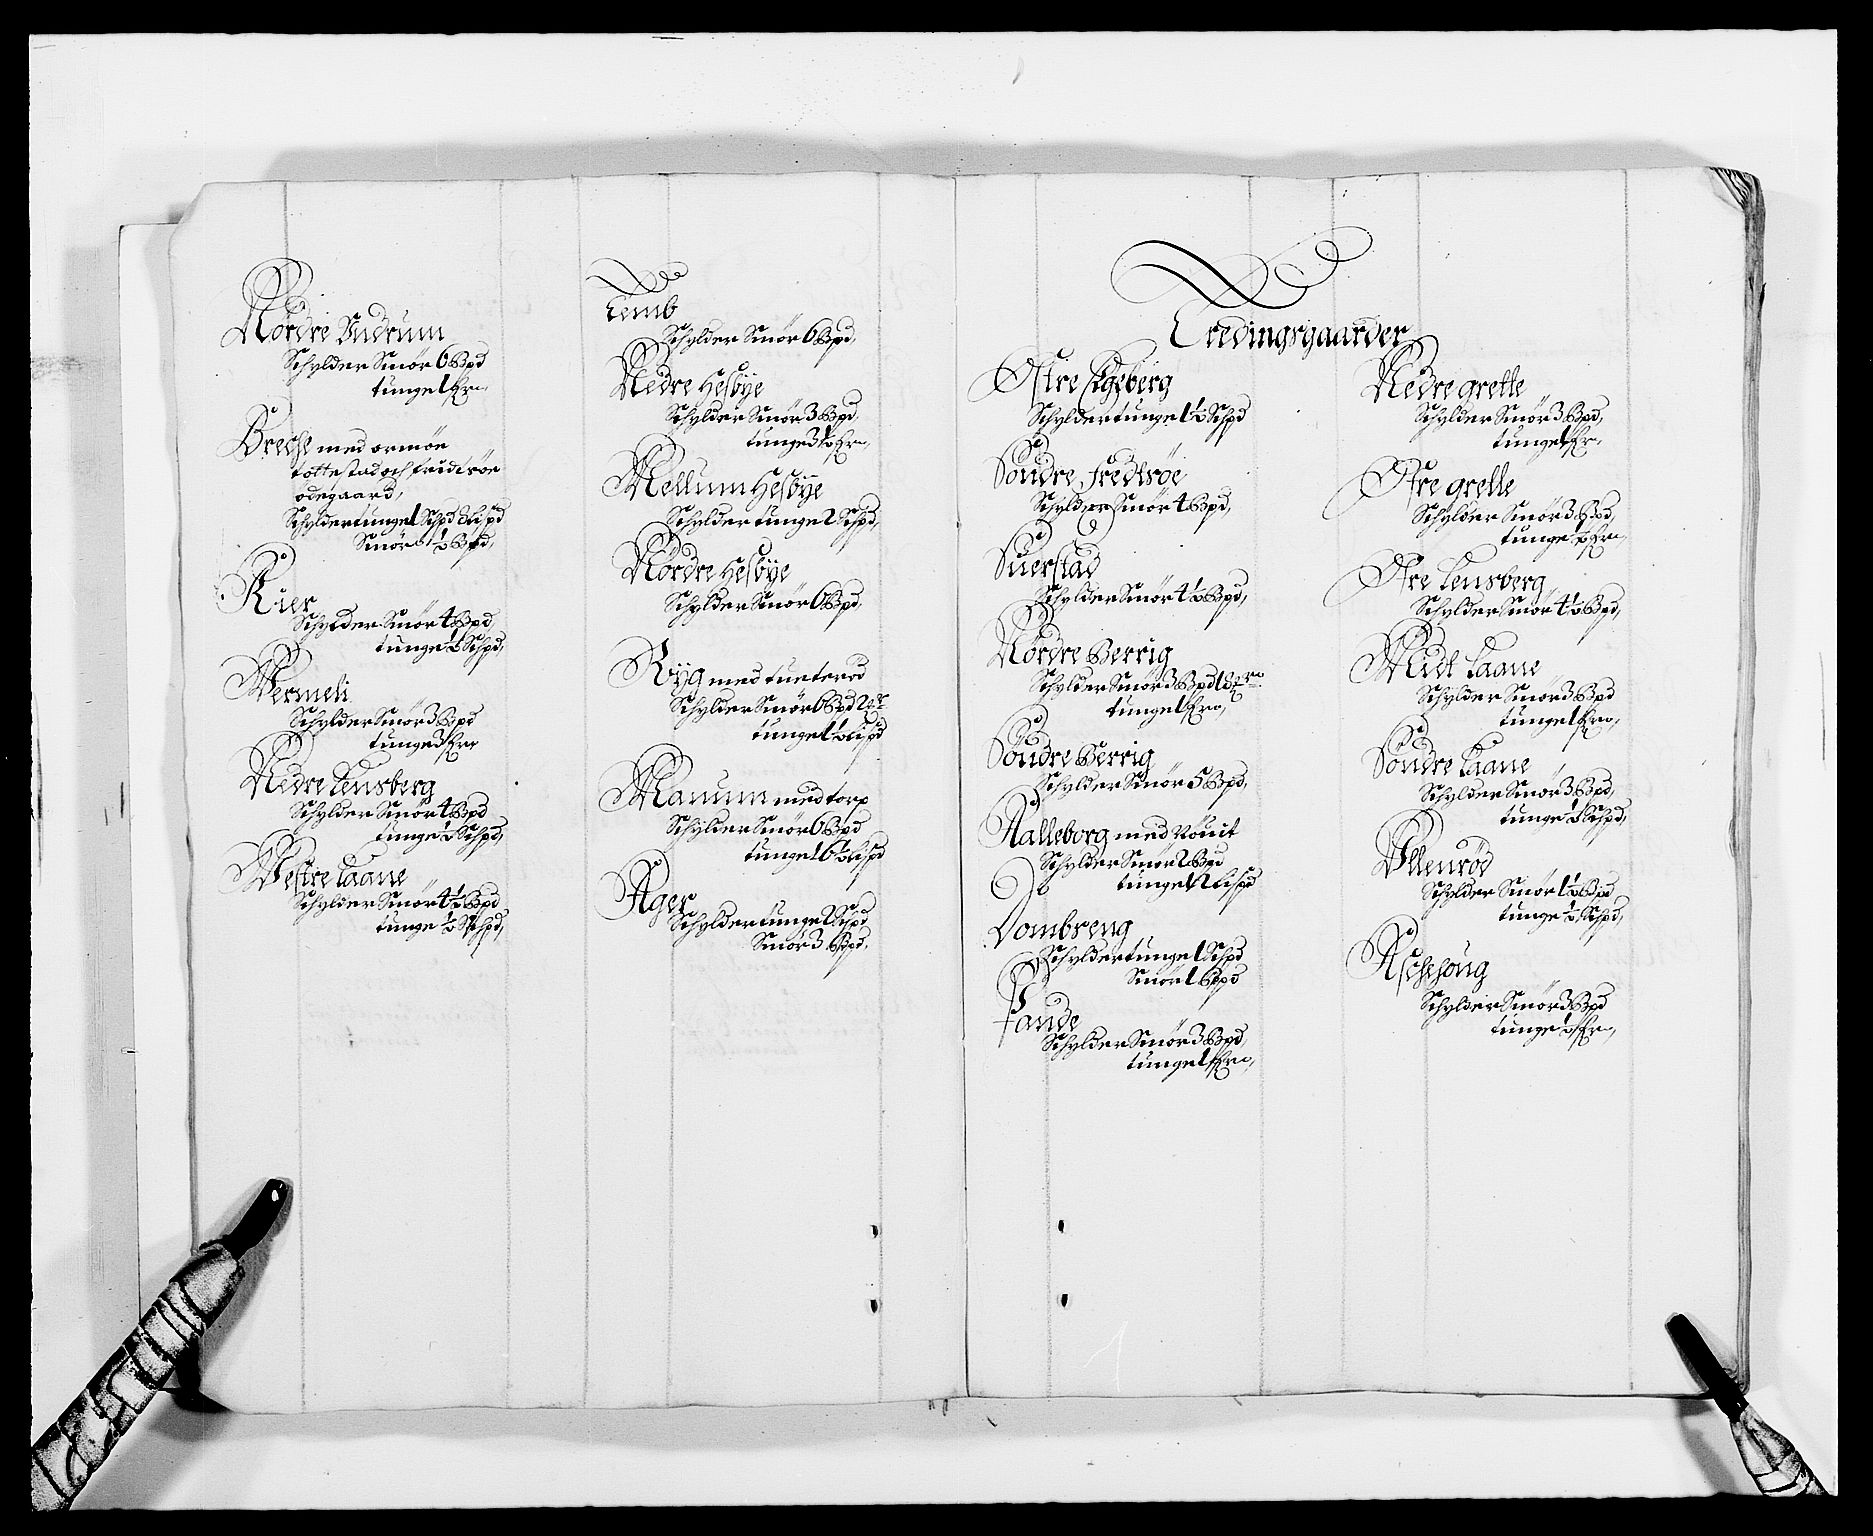 Nördre Undrum
Schylder Smör 6 Bpd
tunge 1 fr.
Brech med ormöe
tottestad och fridtröe
ödegaard,
Schylder tunge 1 Schpd 8 lispd
Smör ½ Bpd,
Kier
Schylder Smör 4 Bpd,
tunge ½ Schpd,
Wermeli
Schylder Smör 3 Bpd
tunge 3 fr.
Nedre Lensberg
Schylder Smör 4 Bpd
tunge ½ Schpd,
Westre Laane
Schylder Smör 4½ Bpd
tunge ½ Schpd,
Lemb
Schylder Smör 6 Bpd,
Nedre Hesbÿe
Schylder Smör 3 Bpd,
tunge 3½ fr.
Mellum Hesbÿe
Schylder tunge 2 Schpd,
Nördre Hesbÿe
Schylder Smör 6 Bpd,
Rÿg med tueteröd
Schylder Smör 6 Bpd
tunge 1½ lispd
Manum med torp
Schylder Smör 6 Bpd
tunge 16½ lispd
Ager
Schylder tunge 2 Schpd
Smör 3 Bpd.
Tredingsgaarder
Ostre Ageberg
Schylder tunge 1½ Schpd
Söndre fredtröe
Schylder Smör 4 Bpd,
Suerstad
Schylder Smör 4½ Bpd,
Nördre Berrig
Schylder Smör 3 Bpd
tunge 1 fr.
Söndre Berrig
Schylder Smör 5 Bpd,
Aalleborg med
Schylder Smör 2 Bpd
tunge 12 lispd
Dombseng
Schylder tunge 1 Schpd
Smör 1 Bpd
Fande
Schylder Smör 3 Bpd,
tunge 1 fr.
Nedre grette
Schylder Smör 3 Bpd,
tunge 1 fr.
Ofre grette
Schylder Smör 3 Bpd,
tunge ½ fr.
Ofre Lensberg
Schylder Smör 4½ Bpd,
Midt Laane
Schylder Smör 3 Bpd
tunge 1 fr.
Söndre Laane
Schylder Smör 3 Bpd,
tunge ½ Schpd,
Ullenröd
Schylder Smör 1½ Bpd
tunge ½ Schpd,
Aschhoug
Schylder Smör 3 Bpd
tunge ½ fr.